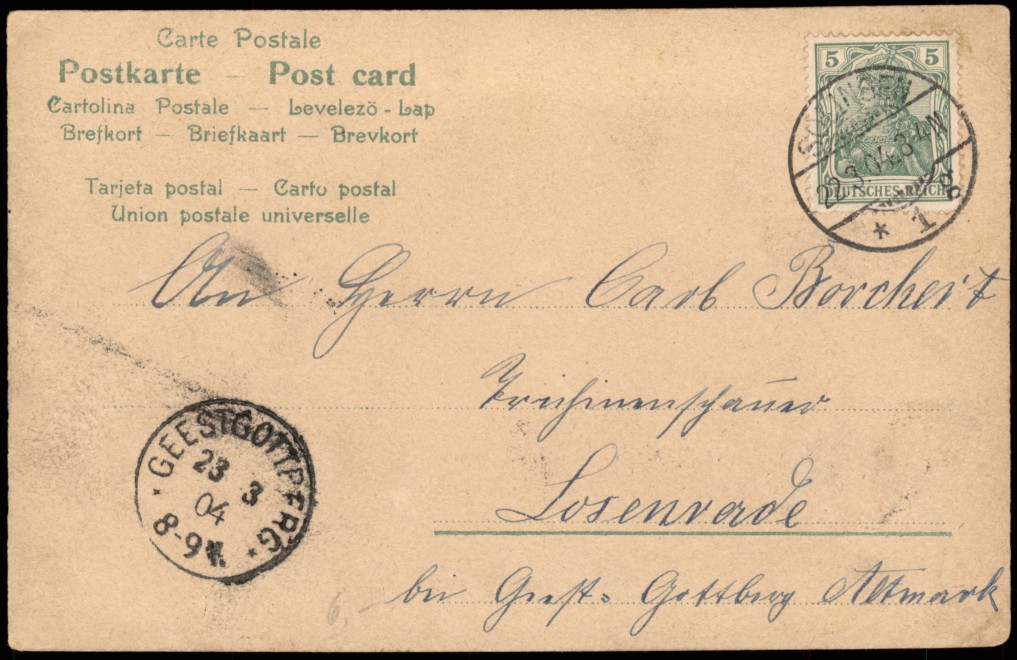 Carte Postale
Postkarte — Post card
Cartolina Postale — Levelezö-Lap
Brefkort — Briefkaart — Brevkort
Tarjeta postal — Carto postal
Union postale universelle
5 5
DEUTSCHES REICH
SOLINGEN
22.3.04.3-4N
* 1 g
An Herrn Carl Borchert
Trichinenschauer
Losenrade
bei Geest-Gottberg Altmark
GEESTGOTTBERG
23 3
04
8-9V.
6,-